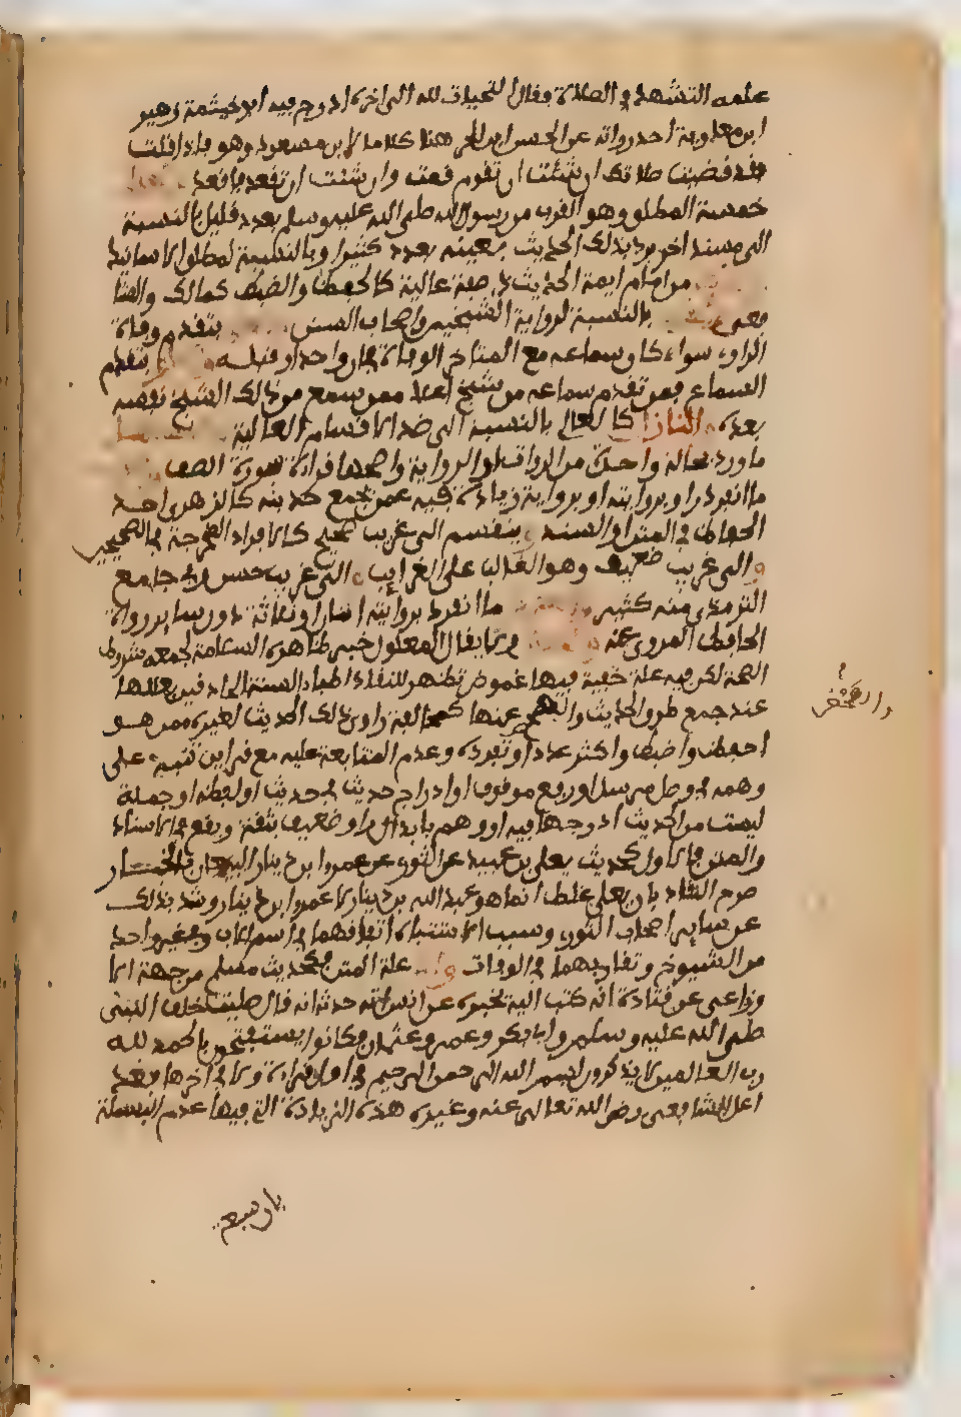 علمه التشهد في الصلاة فقال التحيات لله الى اخره ادرج فيه ابو خيثمة زهير
ابن معاوية احد رواته عن الحسن ابن الحر هنا كلاما لابن مسعود وهو فاذا قلت
فقد قضيت صلاتك ان شئت ان تقوم فقم وان شئت ان تقعد فاقعد
خمسة المطلق وهو القرب من رسول الله صلى الله عليه وسلم بعدد قليل بالنسبة
الى سند اخر يرد بذلك الحديث بعينه بعدد كثير او بالنسبة لمطلق الاسانيد
من امام ايمة الحديث ذي صفة عالية كالحفظ والضبط كمالك والشا
فعي بالنسبة لرواية الشيخين واصحاب السنن بتقدم وفاة
الراوي سواء كان سماعه مع المتاخر الوفاة في ان واحد او قبله بتقدم
السماع فمن تقدم سماعه من شيخ اعلا ممن سمع من ذلك الشيخ نفسه
بعده النازل كالعالي بالنسبة الى ضد الاقسام العالية
ما ورد بحالة واحدة من الرواة او الرواية واصحها قراءة سورة الصف
ما انفرد راو بروايته او برواية زيادة فيه عمن يجمع حديثه كالزهري احد
الحفاظ في المتن او السند وينقسم الى غريب صحيح كالافراد المخرجة في الصحيحين
والى غريب ضعيف وهو الغالب على الغرايب والى غريب حسن وفي جامع
الترمذي منه كثير ما انفرد بروايته اثنان او ثلاثة دون ساير رواة
الحافظ المروي عنه وربما يقال المعلول خبر ظاهره السلامة لجمعه شروط
الصحة لكن فيه علة خفية فيها غموض تظهر للنقاد اطباء السنة الحاذقين بعللها
عند جمع طرق الحديث والفحص عنها كمخالفة راوي ذلك الحديث لغيره ممن هو
احفظ واضبط واكثر عددا وتفرده وعدم المتابعة عليه مع قراين تنبه على
وهمه في وصل مرسل او رفع موقوف او ادراج حديث في حديث او لفظة او جملة
ليست من الحديث ادرجها فيه او وهم بابدال راو ضعيف بثقة ويقع في الاسناد
والمتن فالاول كحديث يعلى بن عبيد عن الثوري عن عمرو ابن دينار البيعان بالخيار
صرح النقاد بان يعلى غلط انما هو عبد الله بن دينار لا عمرو ابن دينار وشذ بذلك
عن ساير اصحاب الثوري وسبب الاشتباه اتفاقهما في اسم الاب وفي غير واحد
من الشيوخ وتقاربهما في الوفات واما علة المتن فكحديث مسلم من جهة الا
وزاعي عن قتادة انه كتب اليه يخبره عن انس انه حدثه انه قال صليت خلف النبي
صلى الله عليه وسلم وابي بكر وعمر وعثمان فكانوا يستفتحون بالحمد لله
رب العالمين لا يذكرون بسم الله الرحمن الرحيم في اول قراءة ولا في اخرها وقد
اعل الشافعي رضي الله تعالى عنه وغيره هذه الزيادة التي فيها عدم البسملة
والفحص